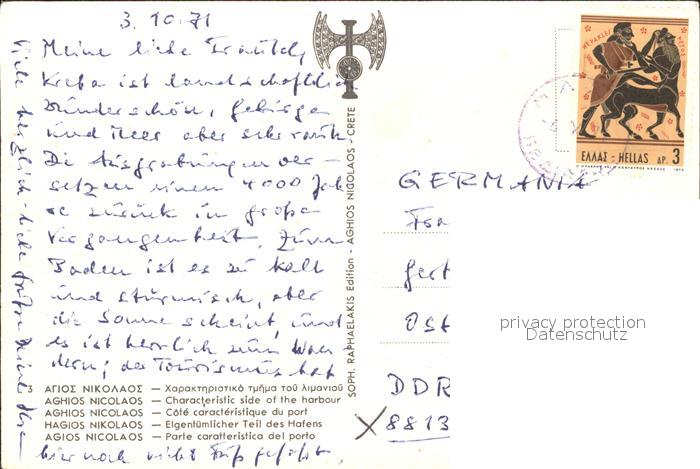 3. 10. 71
Meine liebe Traute,
Kreta ist landschaftlich
wunderschön, Gebirge
und Meer aber sehr
Die Ausgrabungen ver-
setzen einen 4000 Jah-
re zurück in große
Vergangenheit. Zum
Baden ist es zu kalt
und stürmisch, aber
die Sonne scheint, und
es ist herrlich zum Wan-
dern; der Tourismus hat
hier noch nicht Fuß gefaßt.
Viele herzlich-liebe Grüße
3 ΑΓΙΟΣ ΝΙΚΟΛΑΟΣ — Χαρακτηριστικό τμῆμα τοῦ λιμανιοῦ
AGHIOS NICOLAOS — Characteristic side of the harbour
AGHIOS NICOLAOS — Côté caractéristique du port
HAGIOS NIKOLAOS — Eigentümlicher Teil des Hafens
AGIOS NICOLAOS — Parte caratteristica del porto
SOPH. RAPHAELAKIS Edition - AGHIOS NIGOLAOS - CRETE
ΕΛΛΑΣ - HELLAS ΔΡ. 3
1970
GERMANIA
Fra
Gert
Ost
DDR
8813
privacy protection
Datenschutz